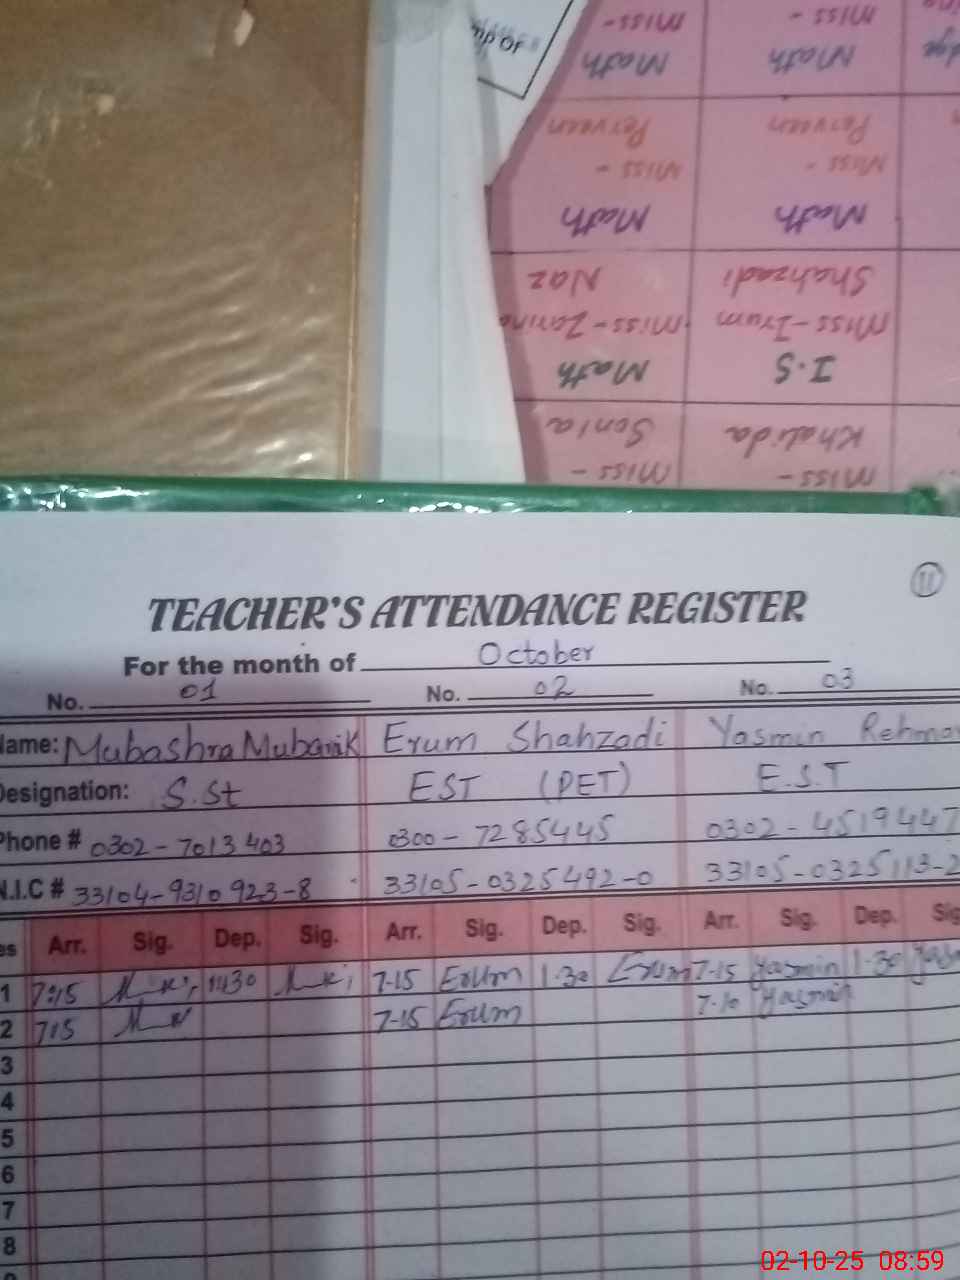 Miss - Miss -
Khalida Sonia
I.S Math
Miss-Irum Miss-Zarina
Shahzadi Naz
Math Math
Miss - Miss -
Perveen Perveen
Math Math
Miss - Miss -
11
TEACHER'S ATTENDANCE REGISTER
For the month of October
No. 01 No. 02 No. 03
Name: Mubashra Mubarik Erum Shahzadi Yasmin
Designation: S.St EST (PET) E.S.T
Phone # 0302-7013403 0300-7285445 0302-4519447
N.I.C # 33104-9310923-8 33105-0325492-0 33105-0325113-2
Arr. Sig. Dep. Sig. Arr. Sig. Dep. Sig. Arr. Sig. Dep. Sig
1 7:15 7-15 Erum 1-30 Erum 7-15 Yasmin 1-30
2 7:15 7-15 Erum 7-10 Yasmin
3
4
5
6
7
8
02-10-25 08:59